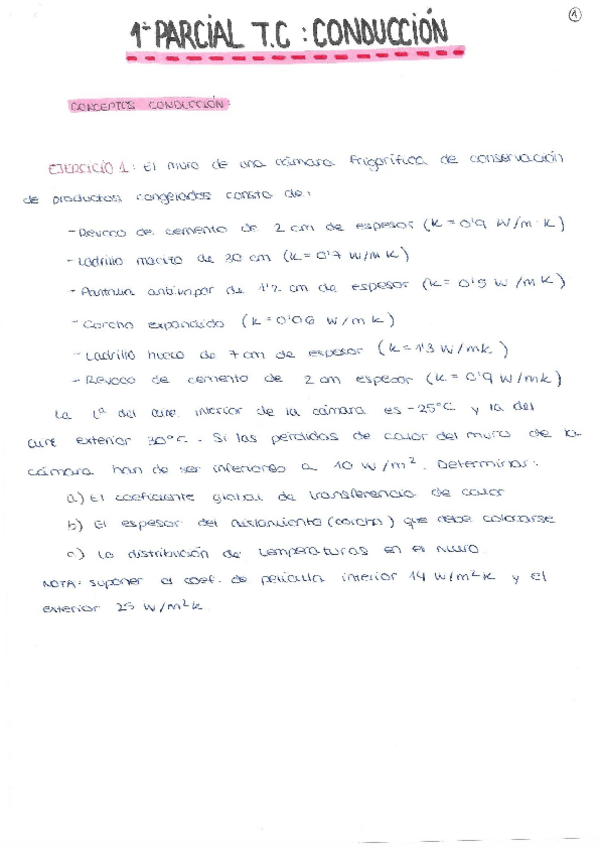 1
1er PARCIAL T.C : CONDUCCIÓN
CONCEPTOS CONDUCCIÓN:
EJERCICIO 1: El muro de una cámara frigorífica de conservación
de productos congelados consta de:
- Revoco de cemento de 2 cm de espesor (k = 0'9 W/m·K)
- Ladrillo macizo de 30 cm (k= 0'7 W/mK)
- Pantalla antivapor de 1'2 cm de espesor (k= 0'5 W/mK)
- Corcho expandido (k= 0'06 W/mk)
- Ladrillo hueco de 7cm de espesor (k= 1'3 W/mk.)
- Revoco de cemento de 2 cm espesor (k= 0'9 W/mk)
La tª del aire interior de la cámara es -25°C y la del
aire exterior 30°C. Si las pérdidas de calor del muro de la
cámara han de ser inferiores a 10 W/m². Determinar:
a) El coeficiente global de transferencia de calor
b) El espesor del aislamiento (corcho) que debe colocarse
c) La distribución de temperaturas en el muro.
NOTA: suponer el coef. de película interior 14 W/m²K y el
exterior 25 W/m²k.